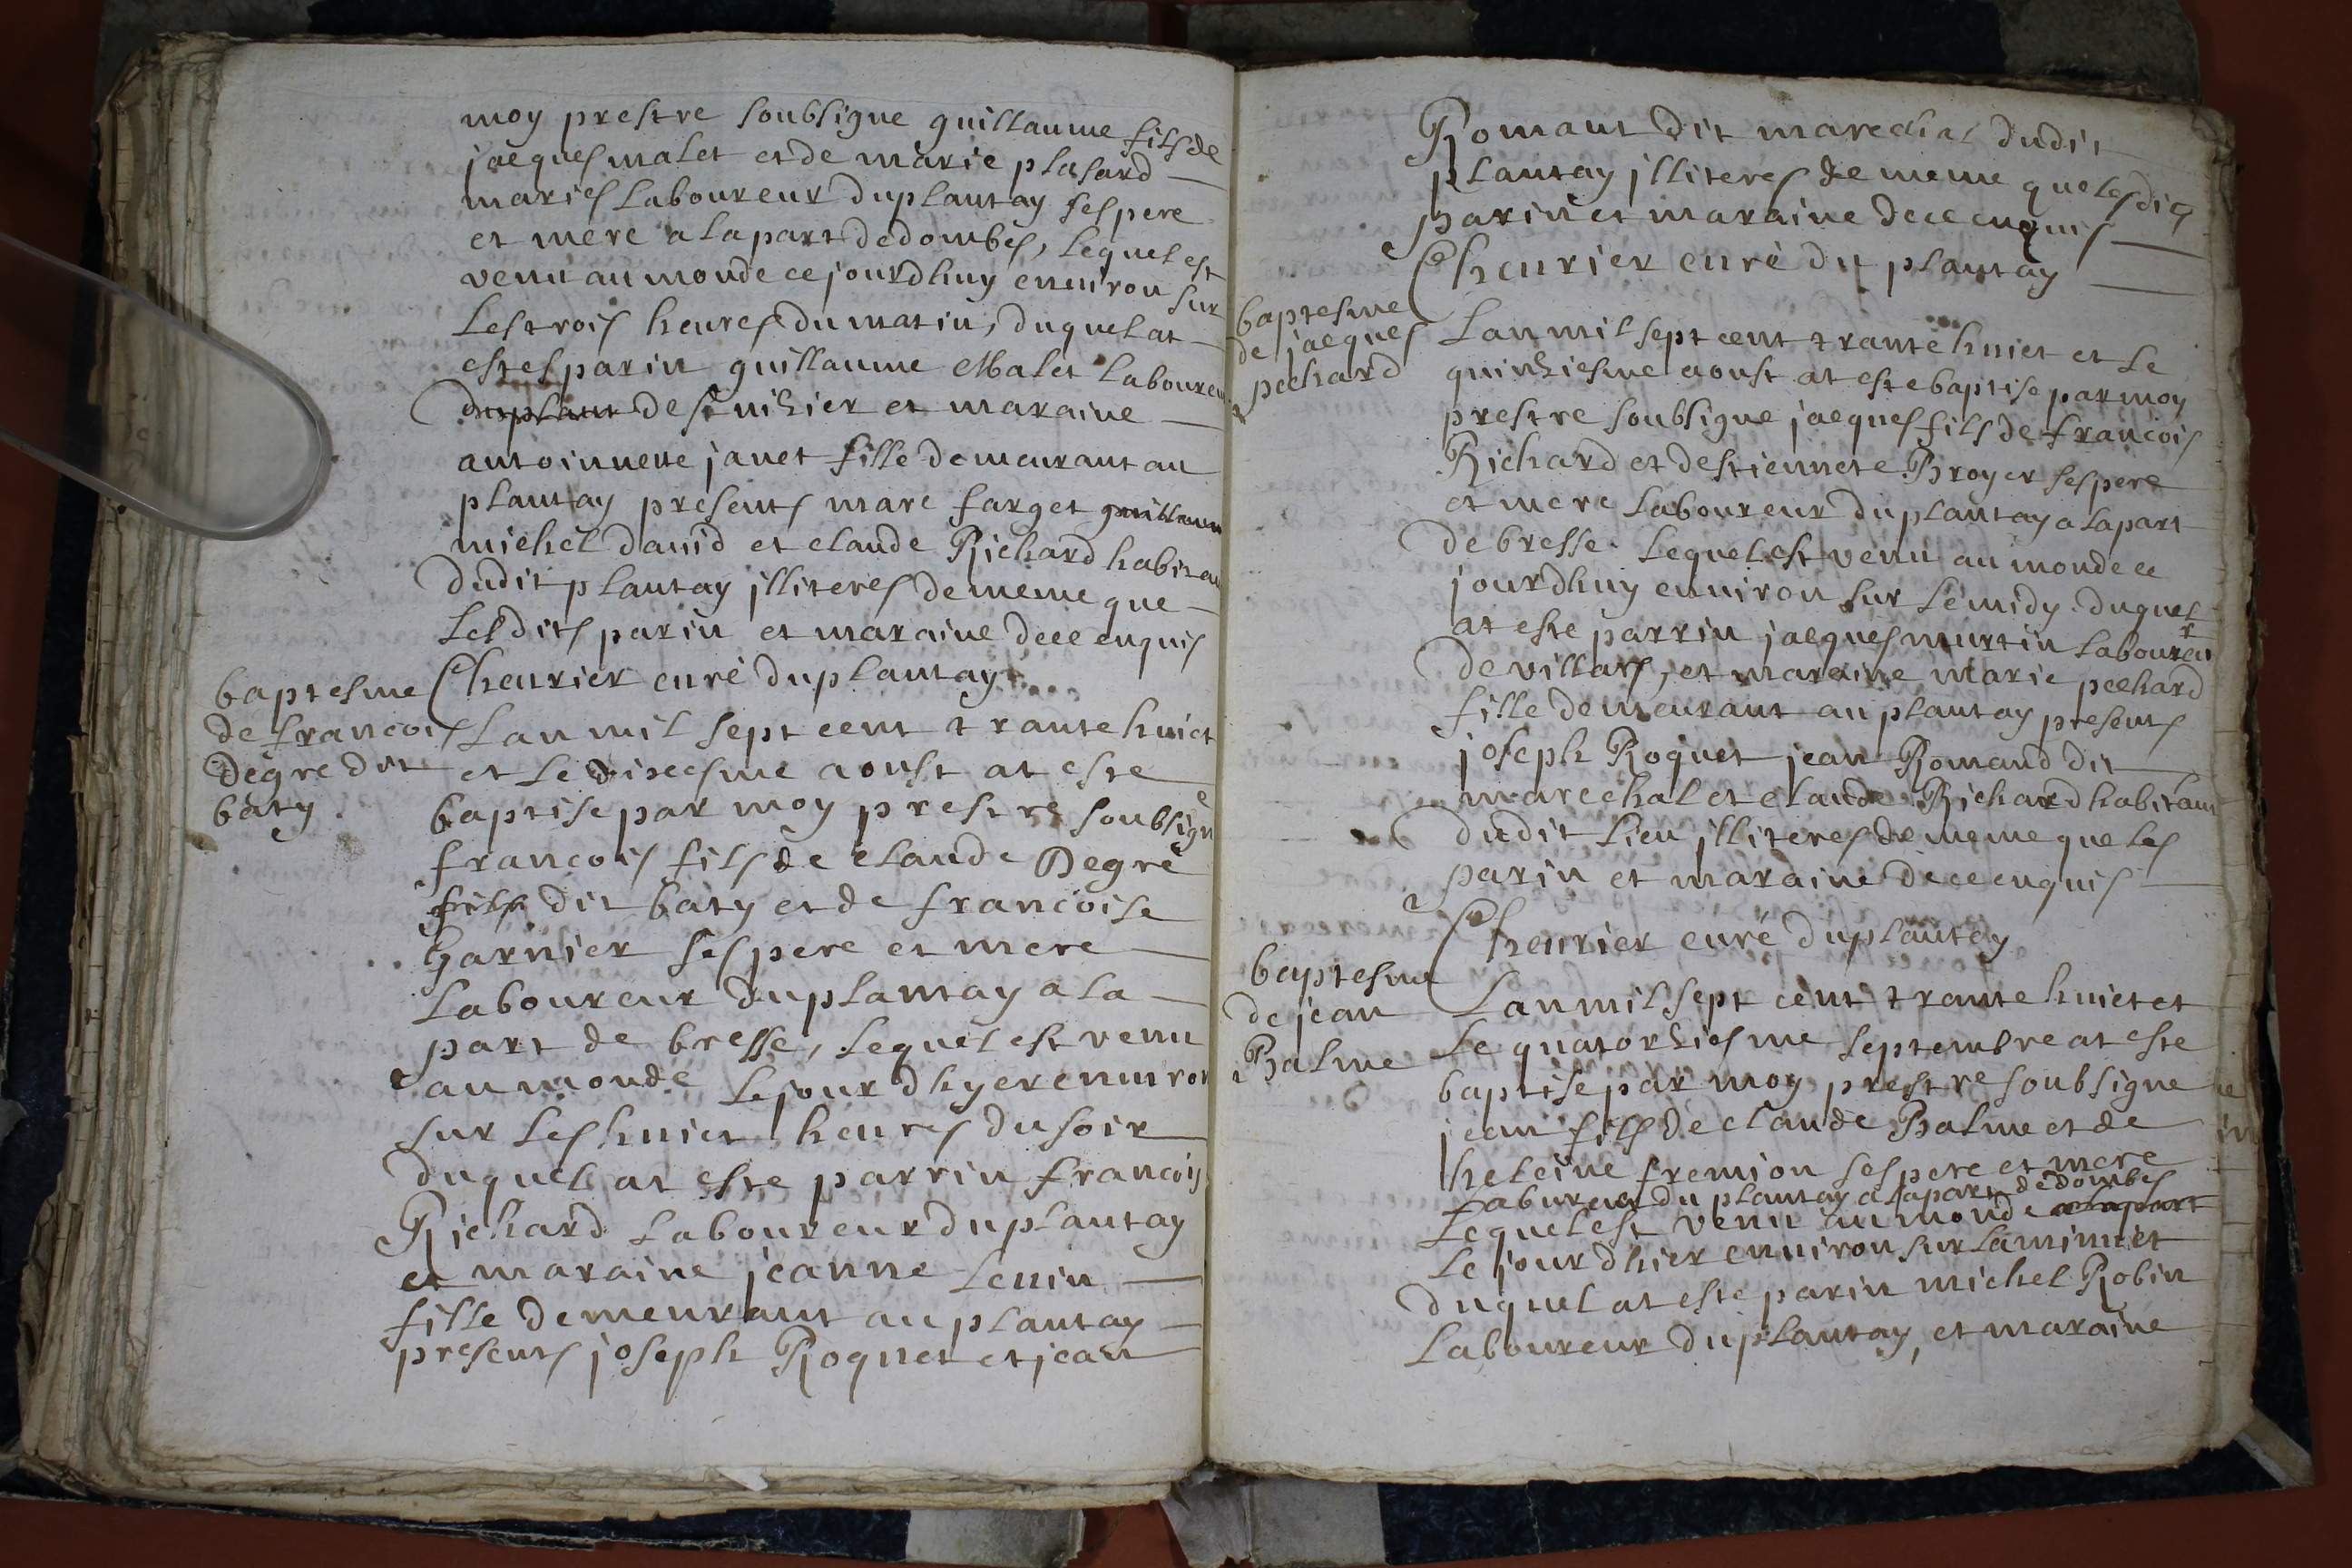 moy prestre soubsigne guillaume fils de
jacques malet et de marie plasard
maries laboureur du plantay ses pere
et mere a la part de dombes, lequel est
venu au monde ce jourdhuy environ sur
les trois heures du matin, duquel at
estes parin guillaume Malet laboureur
du plant de st nizier et maraine
antoinnette janet fille demeurant au
plantay presents marc farget guillaum
michel david et claude Richard habitan
dudit plantay jlliteres de meme que
lesdits parin et maraine de ce enquis
Cheurier curè du plantay
baptesme
de francois
degre dit
baty
Lan mil sept cent trante huict
et le dixesme aoust at este
baptise par moy prestre soubsigne
francois fils de claude Degre
fils dit baty et de francoise
Garnier ses pere et mere
laboureur du plantay a la
part de bresse, lequel est venu
au monde le jour dhyer environ
sur les huict heures du soir
duquel at este parrin francois
Richard laboureur du plantay
et maraine jeanne
fille demeurant au plantay
presents joseph Roquet et jean
Romant dit marechal dudit
plantay jlliteres de meme que lesdits
parin et maraine de ce enquis
Cheurier curè du plantay
baptesme
de jacques
pechard
Lan mil sept cent trante huict et le
quinziesme aoust at este baptise par moy
prestre soubsigne jacques fils de francois
Richard et destiennete Broyer ses pere
et mere laboureur du plantay a la part
de bresse. lequel est venu au monde ce
jourdhuy environ sur le midy duquel
at este parrin jacques murtin laboureur
de villars, et maraine marie pechard
fille demeurant au plantay presents
joseph Roquet jean Romand dit
marechal et claude Richard habitant
dudit lieu jlliteres de meme que les
parin et maraine de ce enquis
Cheurier curé du plantay
baptesme
de jean
Balme
Lan mil sept cent trante huict et
le quatorziesme septembre at este
baptise par moy prestre soubsigne
jean fils de claude Balme et de
heleine fremion ses pere et mere
labureur du plantay a la part de dombes
lequel est venu au monde a la part
le jour dhier environ sur la minuict
duquel at este parin michel Robin
laboureur du plantay, et maraine